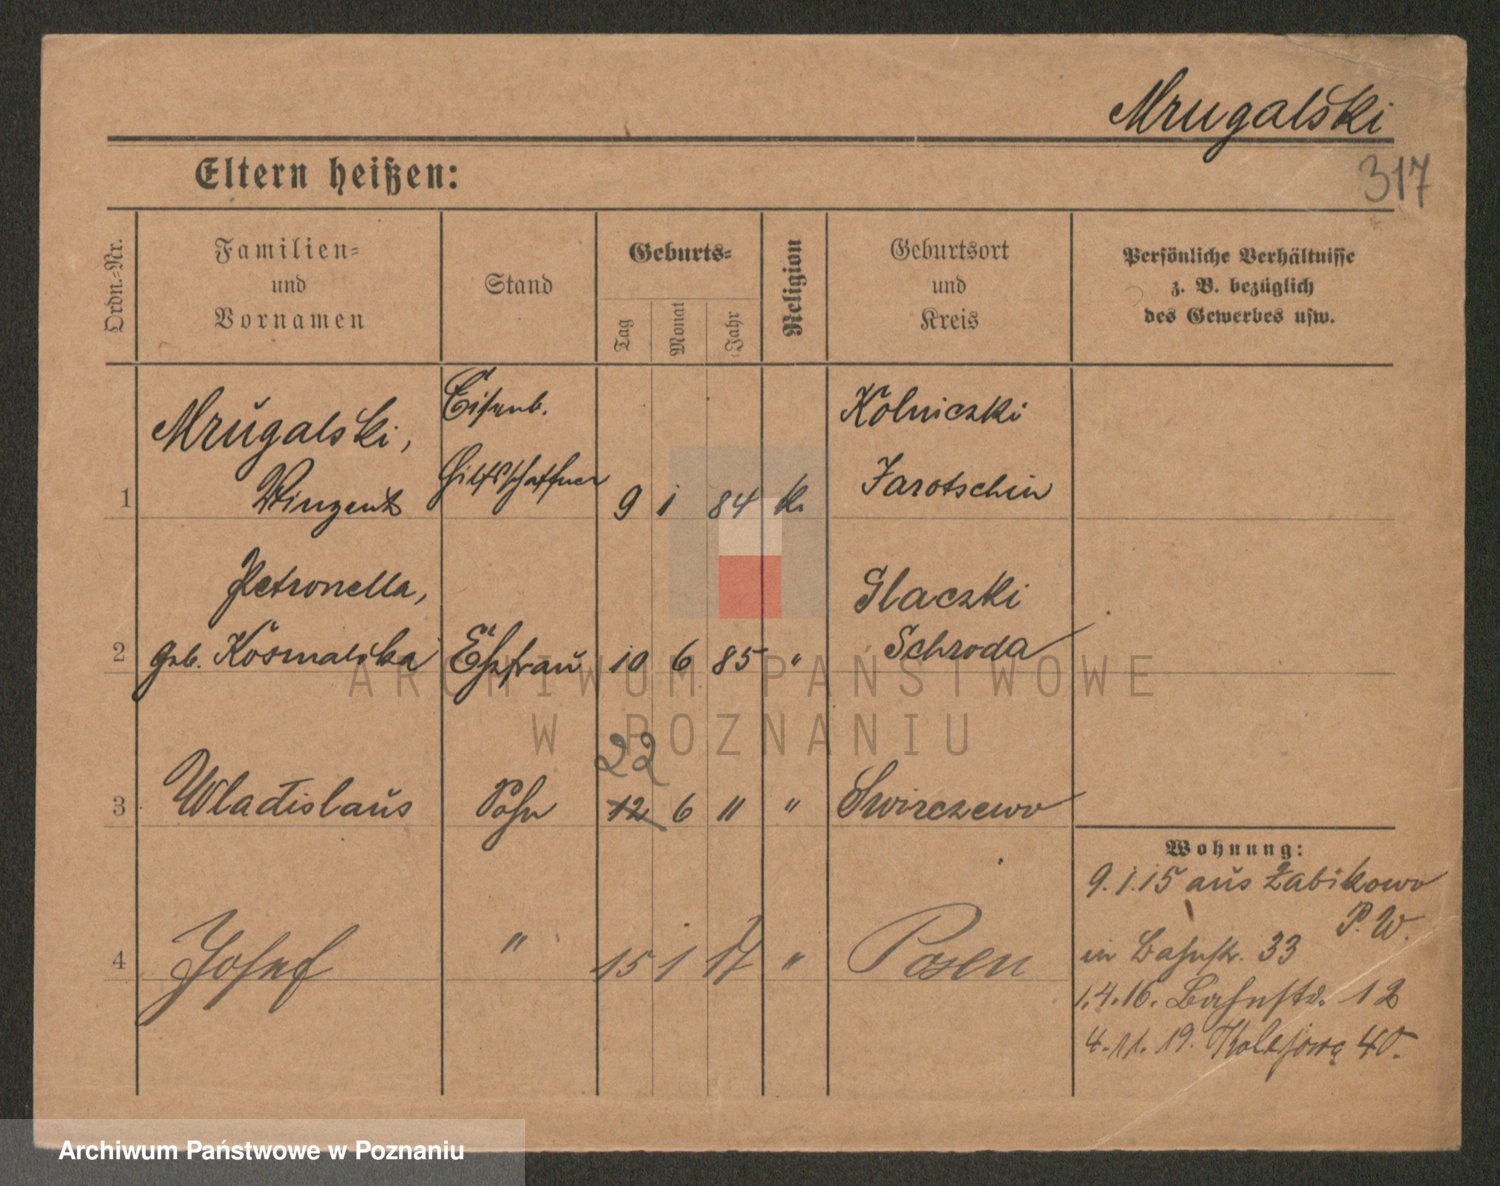 Mrugalski
317
Eltern heißen:
Ordn.-Nr.
Familien- und Vornamen
Stand
Geburts-
Tag
Monat
Jahr
Religion
Geburtsort und Kreis
Persönliche Verhältnisse
z. B. bezüglich
des Gewerbes usw.
Mrugalski, Eisenb. Kolniczki
1 Vinzent Hilfsschaffner 9 1 84 k. Jarotschin
Petronella, Glaczki
2 geb. Kosmalska Ehefrau 10 6 85 " Schroda
22
3 Wladislaus Sohn 12 6 11 " Swirczewo
4 Josef " 15 1 17 " Posen
Wohnung:
9.1.15 aus Zabikowo
P. W.
in Bahnstr. 33
1.4.16. Bahnstr. 12
4.11.19. Kolejowa 40.
ARCHIWUM PAŃSTWOWE
W POZNANIU
Archiwum Państwowe w Poznaniu